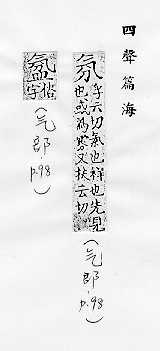 四聲篇海
氛 孚云切氣也祥也先見
也或為雰又扶云切
(气部.p.98)
氲 俗
字
(气部.p.98)